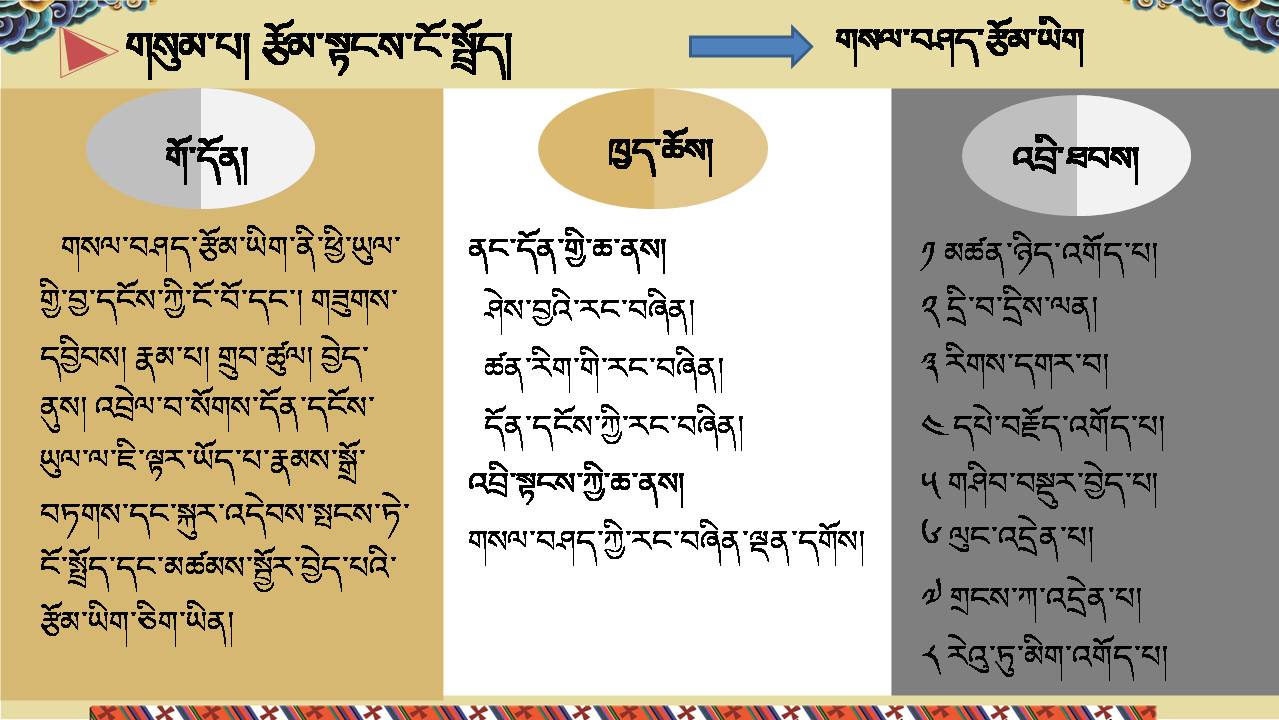 གསུམ་པ། རྩོམ་སྟངས་ངོ་སྤྲོད།
གསལ་བཤད་རྩོམ་ཡིག
གོ་དོན།
གསལ་བཤད་རྩོམ་ཡིག་ནི་ཕྱི་ཡུལ་
གྱི་བྱ་དངོས་ཀྱི་ངོ་བོ་དང་། གཟུགས་
དབྱིབས། རྣམ་པ། གྲུབ་ཚུལ། བྱེད་
ནུས། འབྲེལ་བ་སོགས་དོན་དངོས་
ཡུལ་ལ་ཇི་ལྟར་ཡོད་པ་རྣམས་སྒྲོ་
བཏགས་དང་སྐུར་འདེབས་སྤངས་ཏེ་
ངོ་སྤྲོད་དང་མཚམས་སྦྱོར་བྱེད་པའི་
རྩོམ་ཡིག་ཅིག་ཡིན།
ཁྱད་ཆོས།
ནང་དོན་གྱི་ཆ་ནས།
ཤེས་བྱའི་རང་བཞིན།
ཚན་རིག་གི་རང་བཞིན།
དོན་དངོས་ཀྱི་རང་བཞིན།
འབྲི་སྟངས་ཀྱི་ཆ་ནས།
གསལ་བཤད་ཀྱི་རང་བཞིན་ལྡན་དགོས།
འབྲི་ཐབས།
༡ མཚན་ཉིད་འགོད་པ།
༢ དྲི་བ་དྲིས་ལན།
༣ རིགས་དགར་བ།
༤ དཔེ་བརྗོད་འགོད་པ།
༥ གཤིབ་བསྡུར་བྱེད་པ།
༦ ལུང་འདྲེན་པ།
༧ གྲངས་ཀ་འདྲེན་པ།
༨ རེའུ་ཏུ་མིག་འགོད་པ།